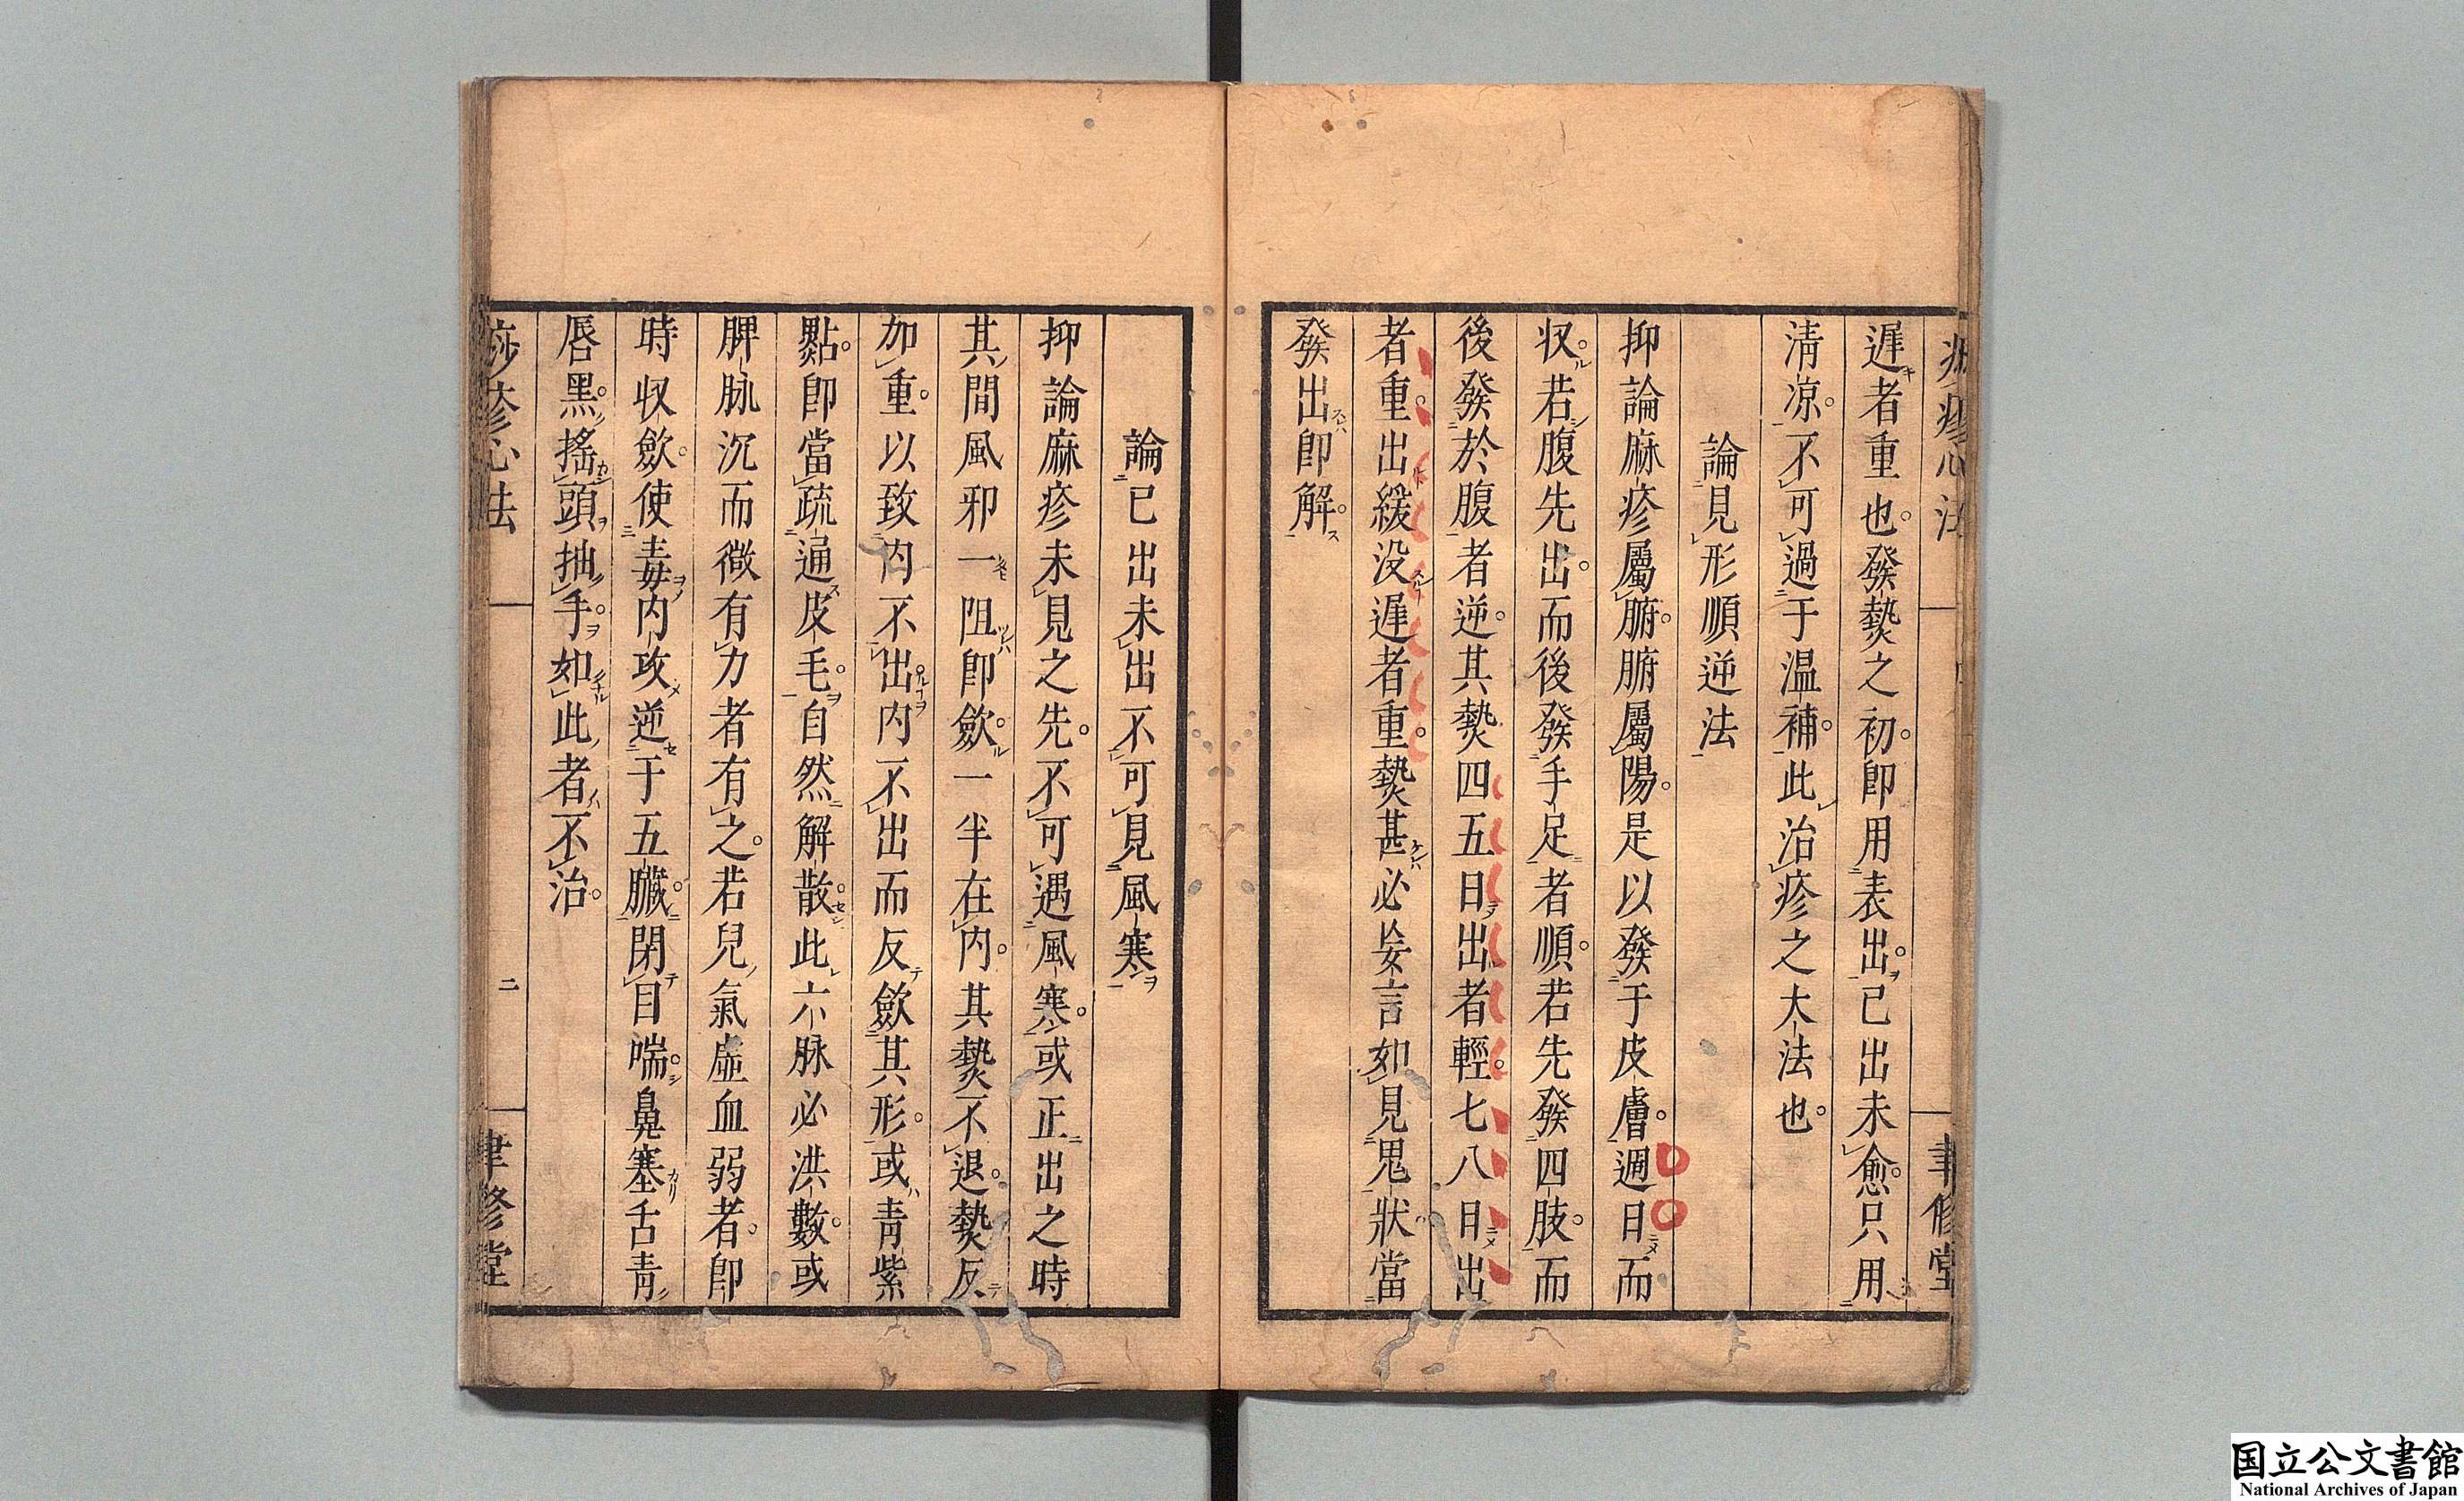 遲者重也。發熱之初。卽用表出。已出未愈。只用
淸凉。不可過于温補。此治疹之大法也。
論見形順逆法
抑論麻疹屬腑。腑屬陽。是以發于皮膚。週日而
収。若腹先出。而後發手足者順。若先發四肢。而
後發於腹者逆。其熱四五日出者輕。七八日出
者重。出緩没遲者重。熱甚必妄言如見鬼狀當
發出卽解。
論已出未出不可見風寒
抑論麻疹未見之先。不可遇風寒。或正出之時
其間風邪一阻卽斂。一半在内。其熱不退。熱反
加重。以致内不出。内不出而反斂其形。或靑紫
點。卽當疏通皮毛。自然解散。此六脉必洪數。或
脾脉沉而微有力者有之。若兒氣虛血弱者。卽
時収斂。使毒内攻逆于五臟。閉目喘。鼻塞舌靑
唇黑。搖頭抽手。如此者不治。
痧疹心法
二
聿修堂
国立公文書館
National Archives of Japan